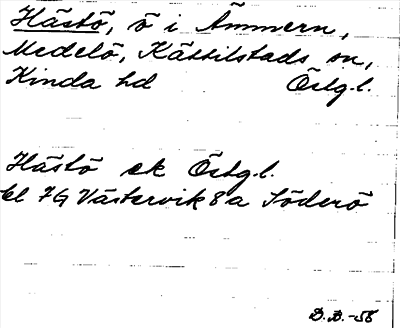 Hästö, ö i Ämmern,
Medelö, Kättilstads sn,
Kinda hd Östg.l.
Hästö ek Östg.l.
bl 7G Västervik 8a Söderö
B.B.-58